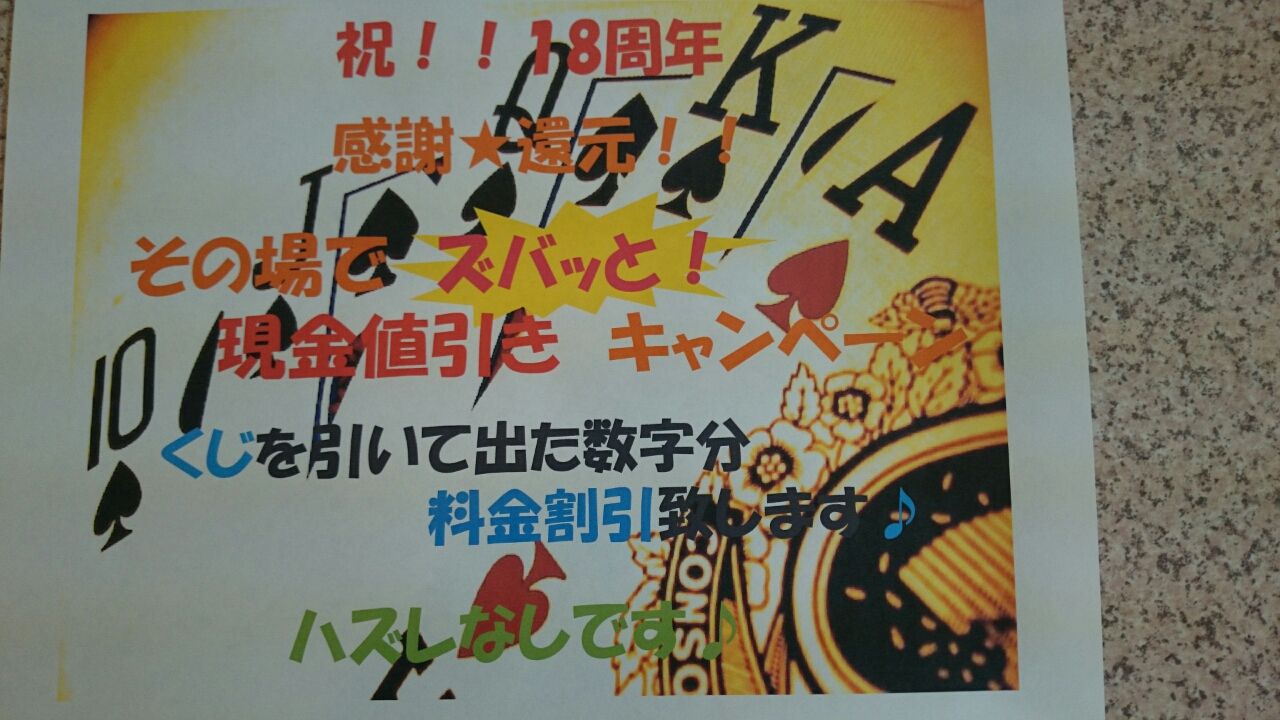 祝！！18周年
感謝★還元！！
その場で ズバッと！
現金値引き キャンペーン
くじを引いて出た数字分
料金割引致します♪
ハズレなしです♪
10
J
Q
K
A